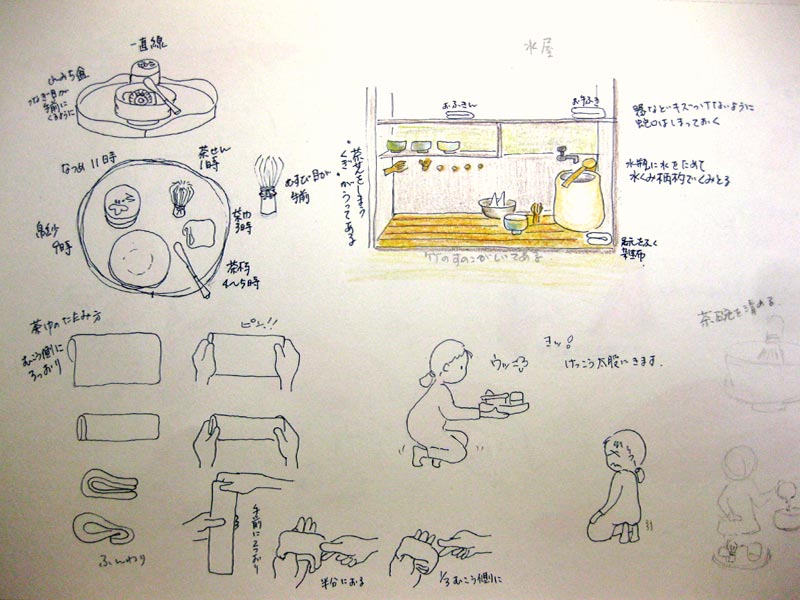 一直線
つなぎ目が
手前に
くるように
なつめ 11時
茶せん
1時
むすび目が
手前
茶巾
3時
帛紗
9時
茶杓
4〜5時
水屋
おふきん
お手ふき
器などにキズつけないように
蛇口はしまっておく
水瓶に水をためて
水くみ柄杓でくみとる
くぎがうってある
竹のすのこがしいてある
足元をふく
茶巾のたたみ方
むこう側に
ピン!!
ウッ
ヨッ!
けっこう太股にきます。
茶碗を清める
ふんわり
手前に2つおり
半分におる
1/3 むこう側に